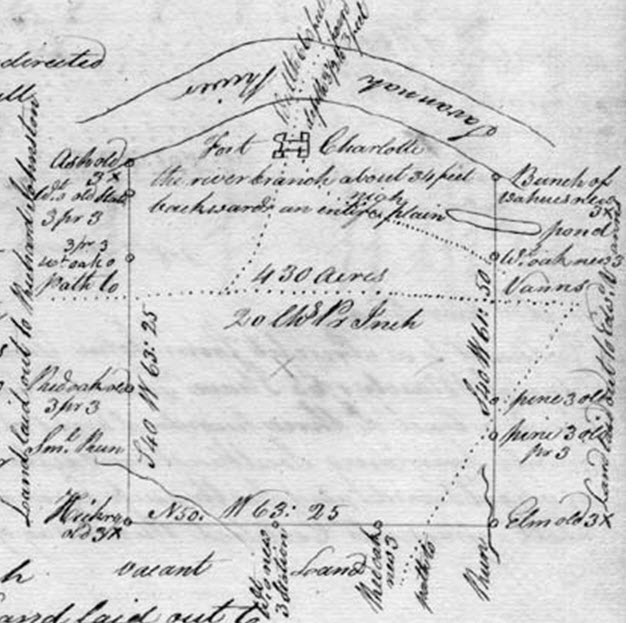 directed
Savannah River
Fort Charlotte
the river branch about 34 feet
high
backwards an entire plain
430 Acres
20 Chs Pr Inch
Ash old
3X
3 pr 3
3 pr 3
wt oak o
path to
Red oak old
3 pr 3
Sml Run
Hickry
old 3X
Land laid out to Richard Johnston
S40 W 63: 25
N50. W 63: 25
S40 W 61: 50
Bunch of
3X
pond
Wt oak new 3
Vanns
pine 3 old
pine 3 old
pr 3
Elm old 3X
Land laid out to
vacant Land
3 Station
Red oak
new 3
path to
Run
and laid out to